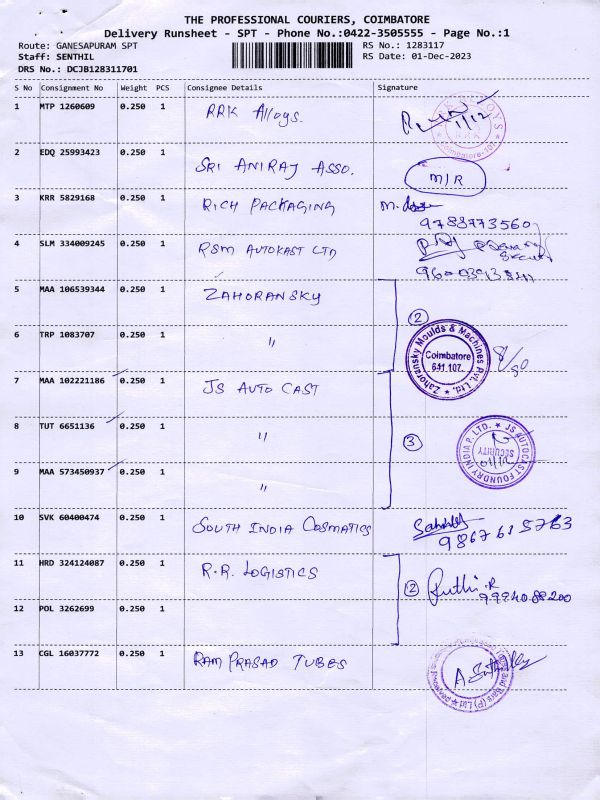 THE PROFESSIONAL COURIERS, COIMBATORE
Delivery Runsheet - SPT - Phone No.:0422-3505555 - Page No.:1
Route: GANESAPURAM SPT RS No.: 1283117
Staff: SENTHIL RS Date: 01-Dec-2023
DRS No.: DCJB128311701
S No Consignment No Weight PCS Consignee Details Signature
1 MTP 1260609 0.250 1 RRK Alloys. 1/12
Coimbatore-107.
2 EDQ 25993423 0.250 1 SRI ANIRAJ ASSO. M/R
3 KRR 5829168 0.250 1 RICH PACKAGING M.
9788773560
4 SLM 334009245 0.250 1 RSM AUTOKAST LTD
5 MAA 106539344 0.250 1 ZAHORANSKY
2
6 TRP 1083707 0.250 1 "
Zahoransky Moulds & Machines Pvt. Ltd.
Coimbatore
641 107.
7 MAA 102221186 0.250 1 JS AUTO CAST
8 TUT 6651136 0.250 1 "
3
JS AUTOCAST FOUNDRY INDIA P. LTD.
SECURITY
01/12
9 MAA 573450937 0.250 1 "
10 SVK 60400474 0.250 1 SOUTH INDIA COSMATICS
9867615763
11 HRD 324124087 0.250 1 R.R. LOGISTICS
2 Ruthi.R
12 POL 3262699 0.250 1
13 CGL 16037772 0.250 1 RAM PRASAD TUBES